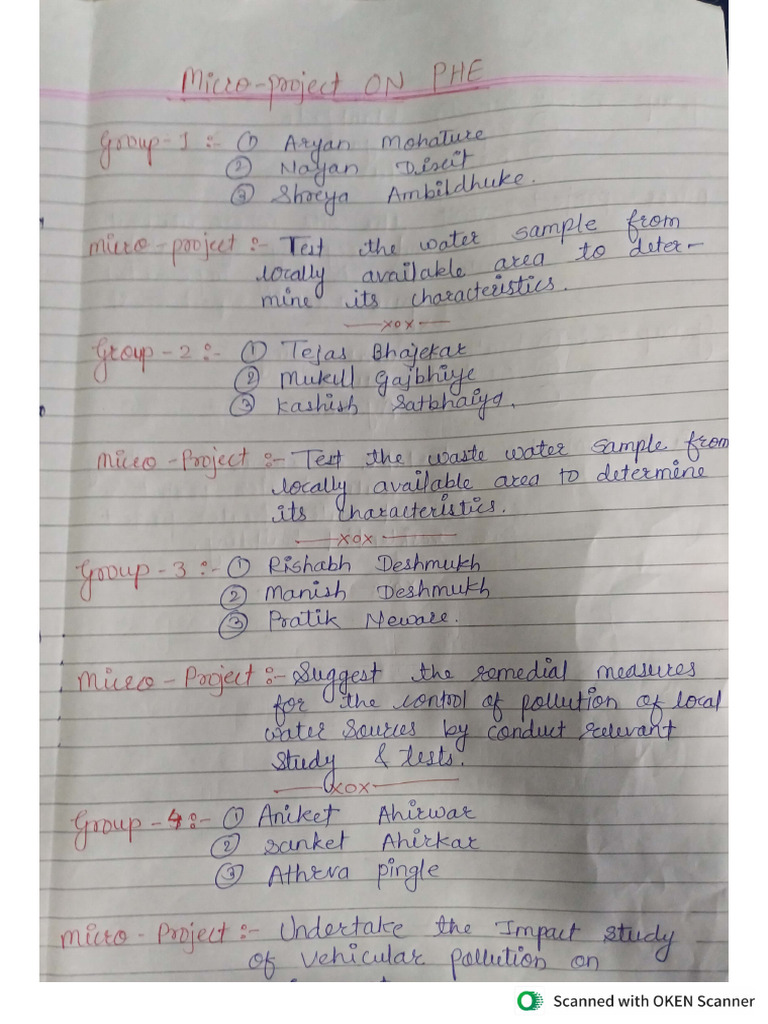 Micro-project ON PHE
Group-1 :- ① Aryan Mohature
② Nayan Dixit
③ Shreya Ambildhuke.
micro-project :- Test the water sample from
locally available area to deter-
mine its characteristics.
xox
Group-2 :- ① Tejas Bhajekar
② Mukull Gajbhiye
③ Kashish Satbhaiya.
Micro-Project :- Test the waste water sample from
locally available area to determine
its characteristics.
xox
Group-3 :- ① Rishabh Deshmukh
② Manish Deshmukh
③ Pratik Neware.
Micro-Project :- Suggest the remedial measures
for the control of pollution of local
water sources by conduct relevant
study & tests.
xox
Group-4 :- ① Aniket Ahirwar
② Sanket Ahirkar
③ Athrva pingle
Micro-Project :- Undertake the Impact study
of vehicular pollution on
Scanned with OKEN Scanner